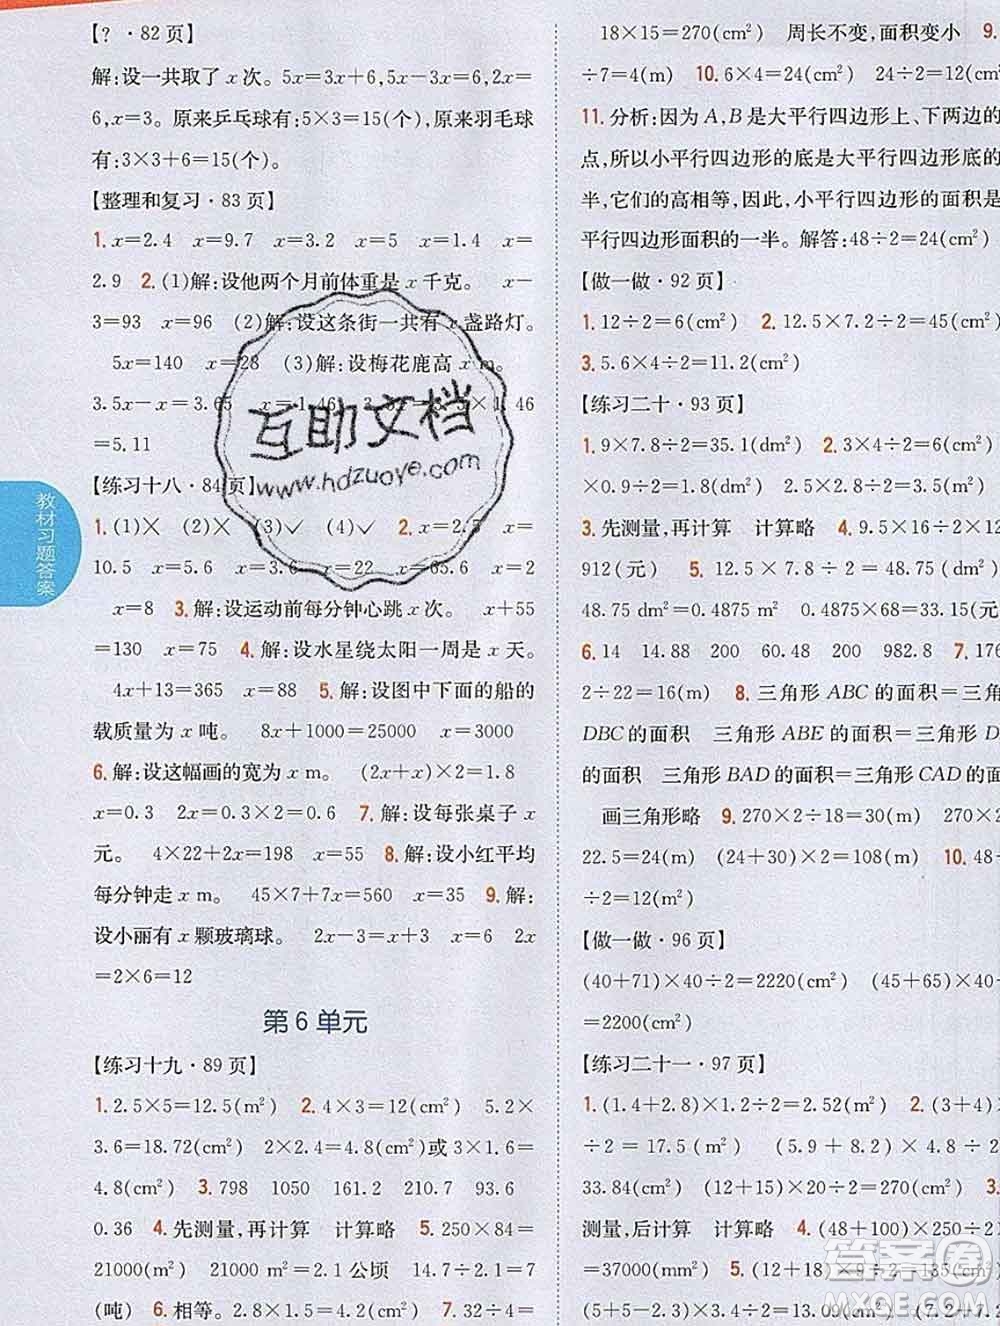 【?·82页】
解:设一共取了x次。5x=3x+6,5x-3x=6,2x=
6,x=3。原来乒乓球有:5×3=15(个),原来羽毛球
有:3×3+6=15(个)。
【整理和复习·83页】
1. x=2.4 x=9.7 x=3.2 x=5 x=1.4 x=
2.9 2. (1)解:设他两个月前体重是x千克。 x-
3=93 x=96 (2)解:设这条街一共有x盏路灯。
5x=140 x=28 (3)解:设梅花鹿高x m。
3.5x-x=3.65 x=1.46 ×1.46
=5.11
【练习十八·84页】
1. (1)× (2)× (3)✓ (4)✓ 2. x=2.5 x=
10.5 x=6.3 x=22 x=65.6 x=2
x=8 3. 解:设运动前每分钟心跳x次。 x+55
=130 x=75 4. 解:设水星绕太阳一周是x天。
4x+13=365 x=88 5. 解:设图中下面的船的
载质量为x吨。 8x+1000=25000 x=3000
6. 解:设这幅画的宽为x m。 (2x+x)×2=1.8
x=0.3 2x=0.3×2=0.6 7. 解:设每张桌子x
元。 4×22+2x=198 x=55 8. 解:设小红平均
每分钟走x m。 45×7+7x=560 x=35 9. 解:
设小丽有x颗玻璃球。 2x-3=x+3 x=6 2x
=2×6=12
第6单元
【练习十九·89页】
1. 2.5×5=12.5(m²) 2. 4×3=12(cm²) 5.2×
3.6=18.72(cm²) 2×2.4=4.8(cm²)或3×1.6=
4.8(cm²) 3. 798 1050 161.2 210.7 93.6
0.36 4. 先测量,再计算 计算略 5. 250×84=
21000(m²) 21000m²=2.1公顷 14.7÷2.1=7
(吨) 6. 相等。2.8×1.5=4.2(cm²) 7. 32÷4=
教材习题答案
18×15=270(cm²) 周长不变,面积变小 9.
÷7=4(m) 10. 6×4=24(cm²) 24÷2=12(cm²)
11. 分析:因为A,B是大平行四边形上、下两边的
点,所以小平行四边形的底是大平行四边形底的
半,它们的高相等,因此,小平行四边形的面积是
平行四边形面积的一半。解答:48÷2=24(cm²)
【做一做·92页】
1. 12÷2=6(cm²) 2. 12.5×7.2÷2=45(cm²)
3. 5.6×4÷2=11.2(cm²)
【练习二十·93页】
1. 9×7.8÷2=35.1(dm²) 2. 3×4÷2=6(cm²)
×0.9÷2=0.54(cm²) 2.5×2.8÷2=3.5(cm²)
3. 先测量,再计算 计算略 4. 9.5×16÷2×12=
912(元) 5. 12.5×7.8÷2=48.75(dm²)
48.75 dm²=0.4875m² 0.4875×68=33.15(元
6. 14 14.88 200 60.48 200 982.8 7. 176
2÷22=16(m) 8. 三角形ABC的面积=三角
DBC的面积 三角形ABE的面积=三角形D
的面积 三角形BAD的面积=三角形CAD的面
画三角形略 9. 270×2÷18=30(m) 270×
22.5=24(m) (24+30)×2=108(m) 10.
÷2=2(m²)
【做一做·96页】
(40+71)×40÷2=2220(cm²) (45+65)×40÷
=2200(cm²)
【练习二十一·97页】
1. (1.4+2.8)×1.2÷2=2.52(m²) 2. (3+4)
÷2=17.5(m²) (5.9+8.2)×4.8÷2
33.84(cm²) (12+15)×20÷2=270(cm²) 3.
测量,后计算 计算略 4. (48+100)×250÷2
=37000(mm²) 5. (12+18)
(5+5.4)×2.52÷2=13.09(cm²) (7.2+
互助文档
www.hdzuoye.com
答案圈
MXQE.COM